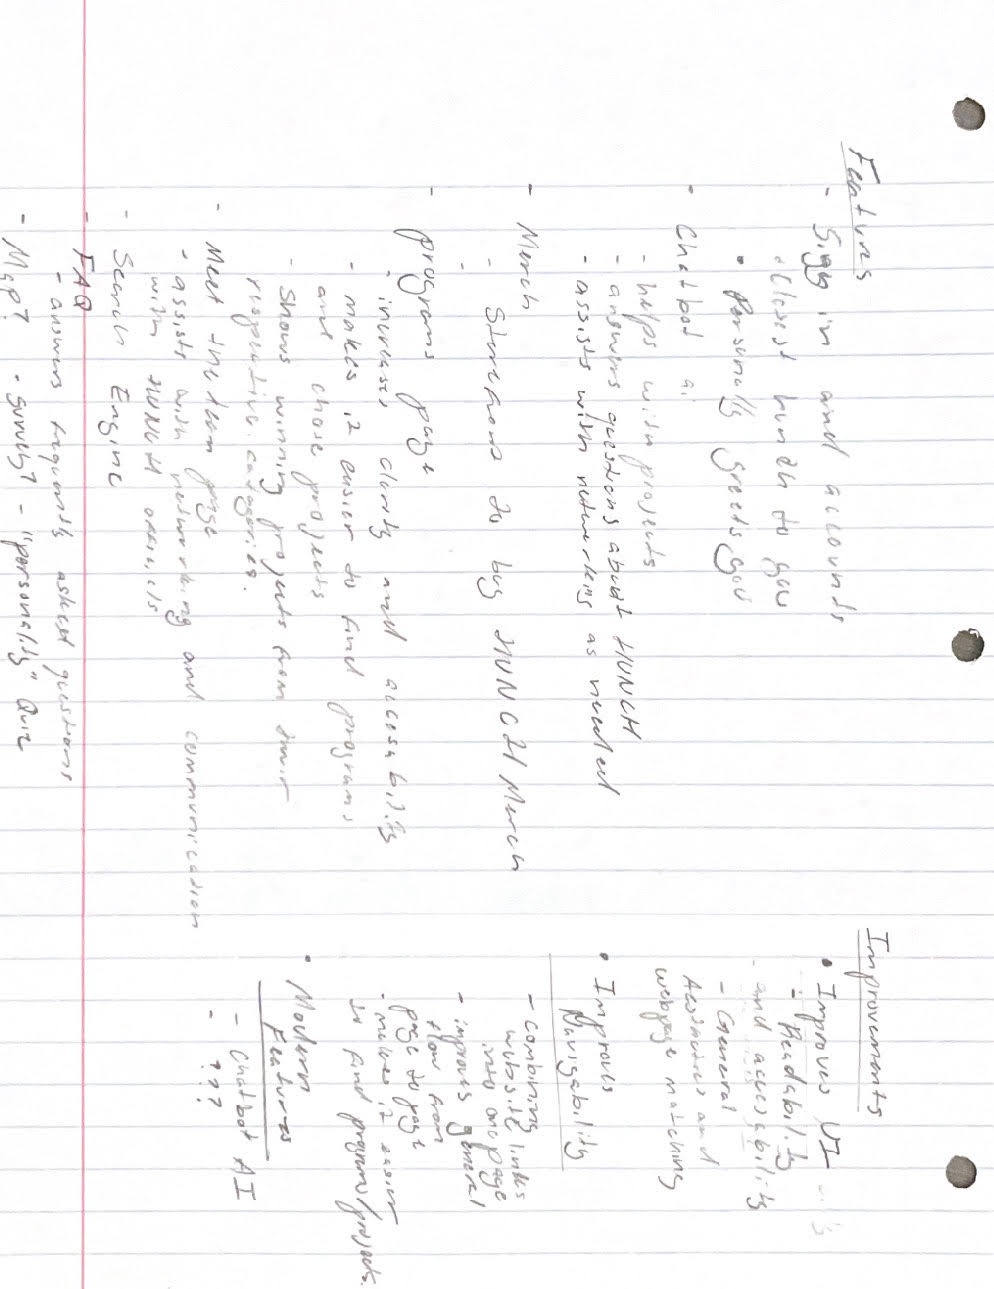 Features
- Sign in and accounts
• Closest hunch to you
• Personally greets you
• Chatbot ai
- helps with projects
- answers questions about HUNCH
- assists with networking as needed
- Merch
- Storefront to by HUNCH Merch
-
- Programs page
- increases clarity and accesability
- makes it easier to find programs
and chose projects
- Shows winning projects from their
respective catagories.
- Meet the team page
- assists with networking and communication
with HUNCH officials
- Search Engine
- FAQ
- answers frequently asked questions
- Map? • Survey? - "personality" Quiz
Improvements
• Improves UI
- Readability
- and accesability
- General
Aesthetics and
webpage matching
• Improves
Navigability
- combining
website links
into one page
- improves general
flow from
page to page
- makes it easier
to find programs/projects.
• Modern
Features
- Chatbot AI
- ???